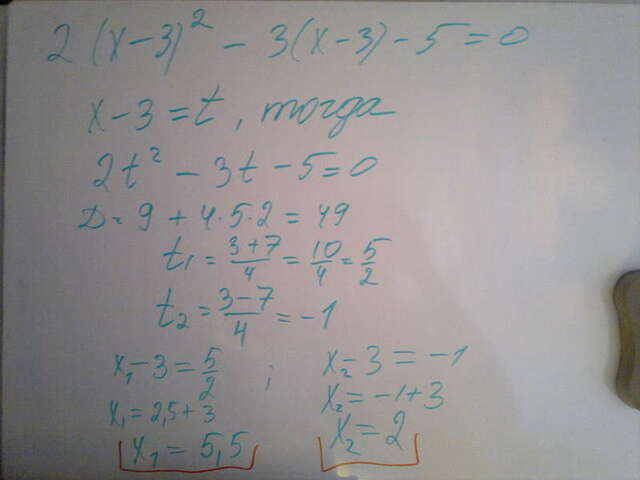 2(x-3)² - 3(x-3) - 5 = 0
x-3 = t, тогда
2t² - 3t - 5 = 0
D = 9 + 4·5·2 = 49
t₁ = (3+7)/4 = 10/4 = 5/2
t₂ = (3-7)/4 = -1
x₁ - 3 = 5/2 ; x₂ - 3 = -1
x₁ = 2,5 + 3 x₂ = -1+3
x₁ = 5,5 x₂ = 2